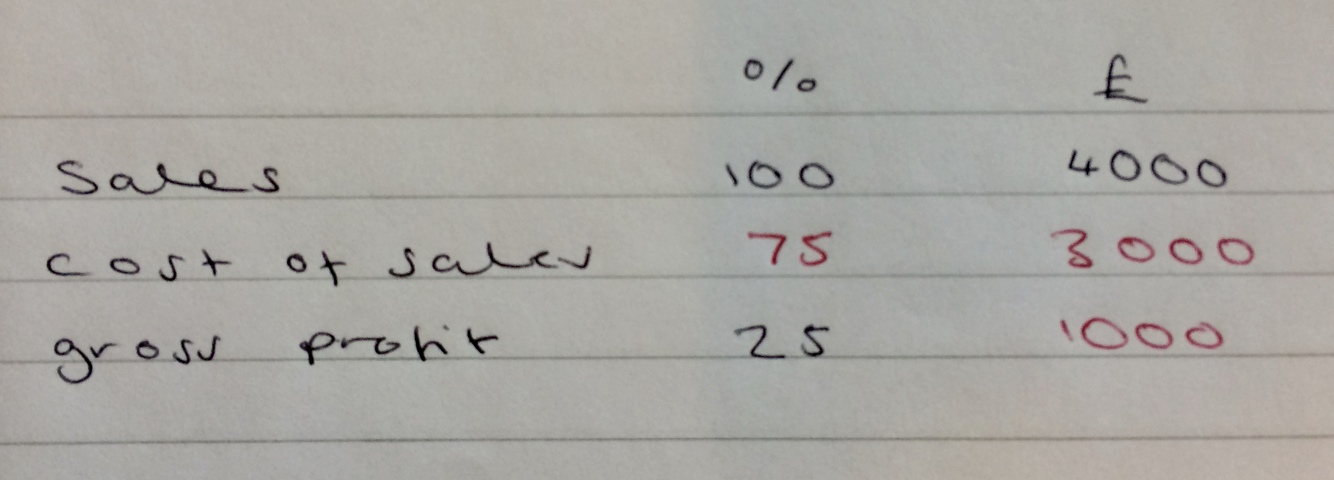 % £
Sales 100 4000
cost of sales 75 3000
gross profit 25 1000